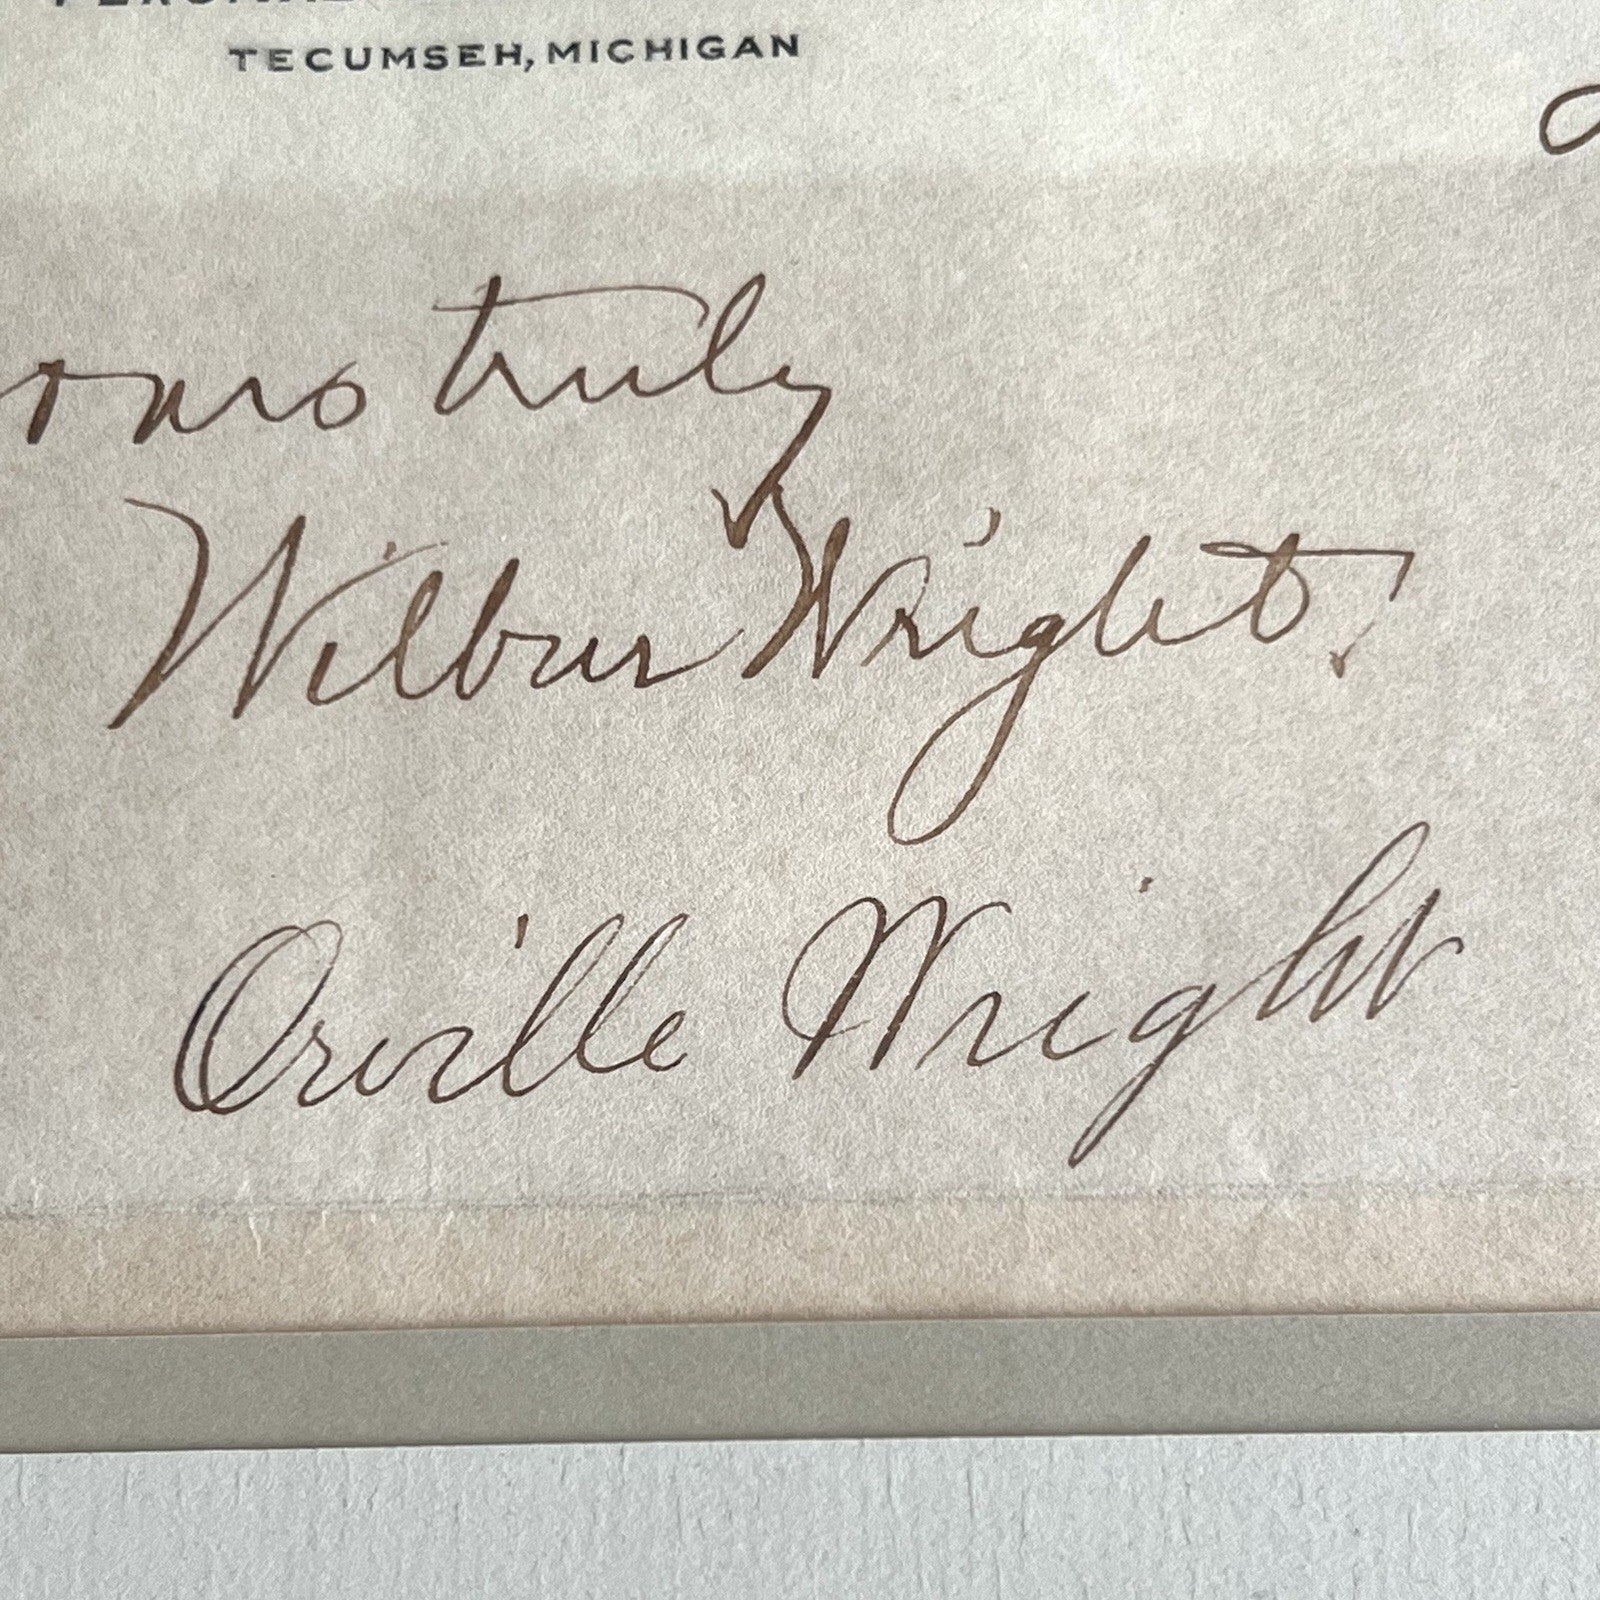 PERSONAL
TECUMSEH, MICHIGAN
Yours truly
Wilbur Wright.
Orville Wright